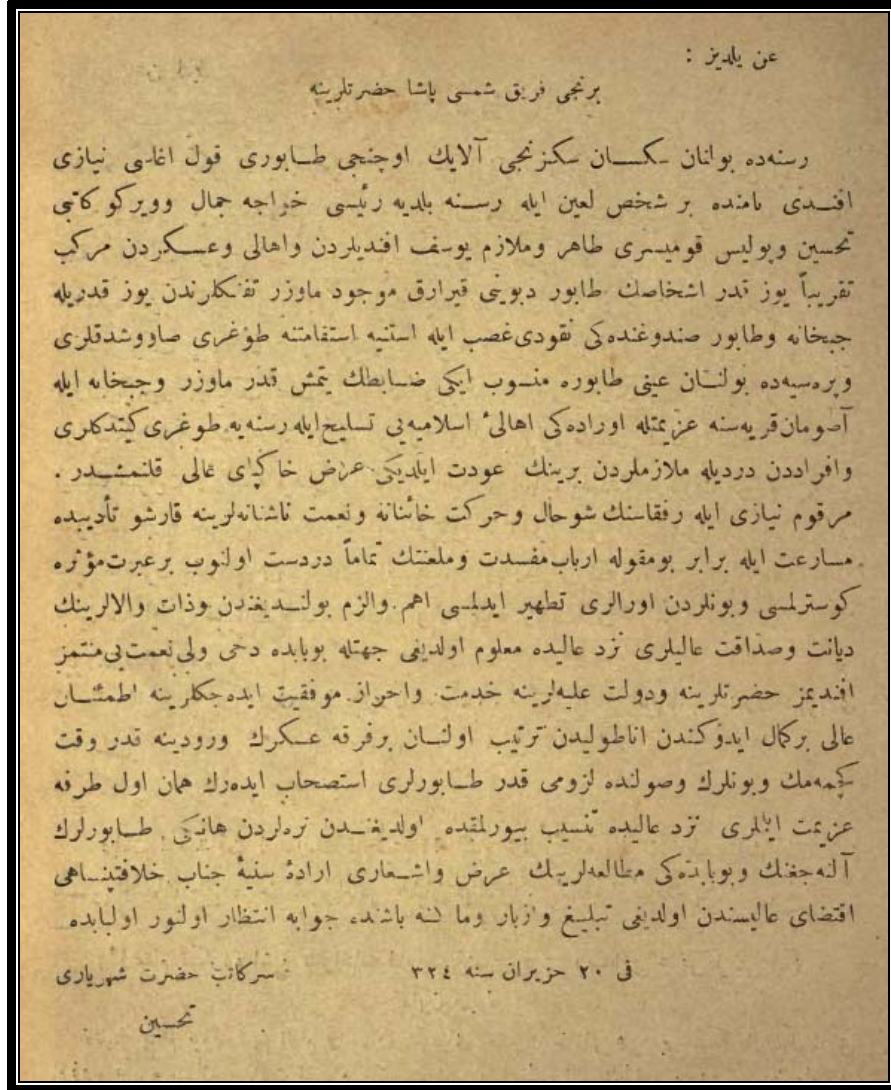 عن يلديز :
برنجی فريق شمسی پاشا حضرتلرينه
رسنه‌ده بولنان سكسان سكزنجی آلايك اوچنجی طابوری قول اغاسی نيازی
افندی نامنده بر شخص لعين ايله رسنه بلديه رئيسی خواجه جمال وويركو كاتبی
تحسين وپوليس قوميسری طاهر وملازم يوسف افنديلردن واهالی وعسكردن مركب
تقريباً يوز قدر اشخاصك طابور دپويی قيرارق موجود ماوزر تفنكلرندن يوز قدريله
جبخانه وطابور صندوغنده‌كی نقودی غصب ايله استنيه استقامتنه طوغری صاووشدقلری
وپره‌سپه‌ده بولنان عينی طابوره منسوب ايكی ضابطك يتمش قدر ماوزر وجبخانه ايله
آصومان قريه‌سنه عزيمتله اوراده‌كی اهالئ اسلاميه‌يی تسليح ايله رسنه‌يه طوغری كيتدكلری
وافراددن درديله ملازملردن برينك عودت ايلديكی عرض خاكپای عالی قلنمشدر .
مرقوم نيازی ايله رفقاسنك شو حال وحركت خائنانه ونعمت ناشناسانه‌لرينه قارشو تأديبده
مسارعت ايله برابر بومقوله ارباب مفسدت وملعنتك تماماً دردست اولنوب برعبرت مؤثره
كوسترلمسی وبونلردن اورالری تطهير ايدلمسی اهم والزم بولنديغندن وذات والالرينك
ديانت وصداقت عاليلری نزد عاليده معلوم اولديغی جهتله بوبابده دخی ولی نعمت بی‌منتمز
افنديمز حضرتلرينه ودولت عليه‌لرينه خدمت واحراز موفقيت ايده‌جكلرينه اطمئنان
عالی بركمال ايدوكندن اناطوليدن ترتيب اولنان برفرقه عسكرك ورودينه قدر وقت
كچمه‌مك وبونلرك وصولنده لزومی قدر طابورلری استصحاب ايده‌رك همان اول طرفه
عزيمت ايلملری نزد عاليده تنسيب بيورلمقده اولديغندن نره‌لردن هانكی طابورلرك
آلنه‌جغنك وبوبابده‌كی مطالعه‌لرينك عرض واشعاری ارادۀ سنيۀ جناب خلافتپناهی
اقتضای عاليسندن اولديغی تبليغ وازبار وماكنه باشنده جوابه انتظار اولنور اولبابده
فی ٢٠ حزيران سنه ٣٢٤
سركاتب حضرت شهرياری
تحسين